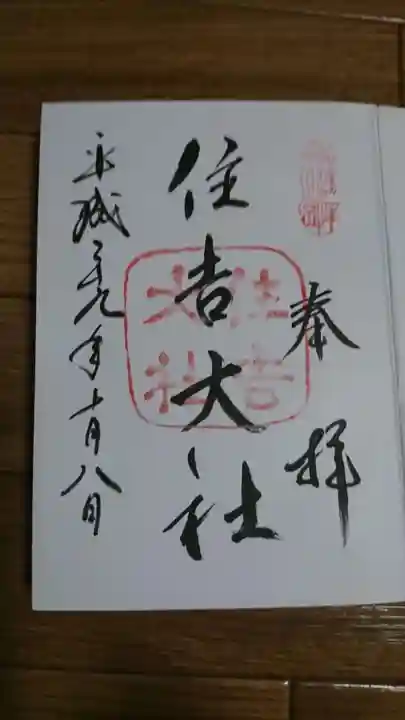 奉拝
住吉大社
平成二九年十月八日
住吉
大社